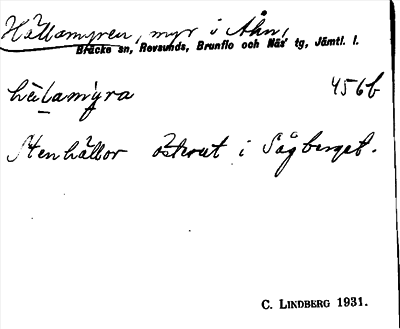 Hällamyren, myr i Åhn,
Bräcke sn, Revsunds, Brunflo och Näs' tg, Jämtl. l.
hälamýra 456b
Stenhällor österut i Sågberget.
C. LINDBERG 1931.